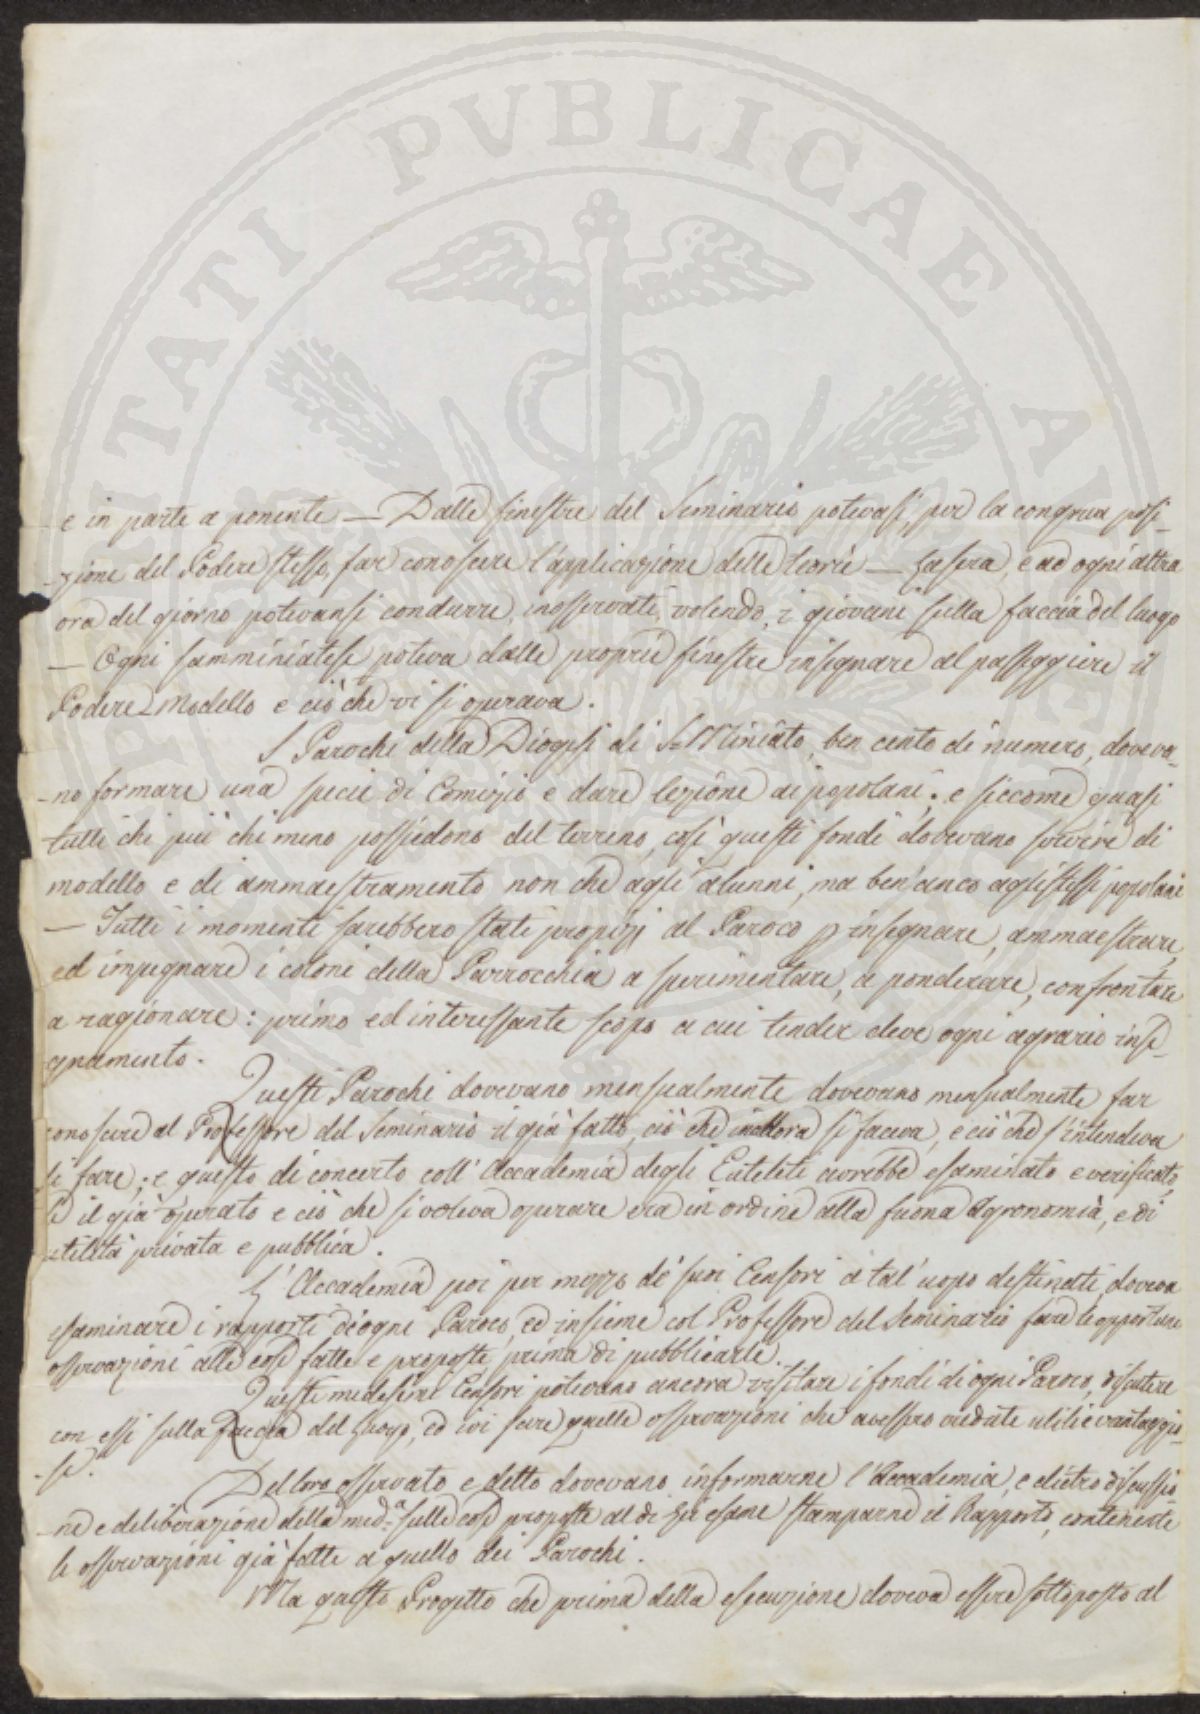 PROSPERITATI PVBLICAE AVGENDAE
e in parte a ponente — Dalle finestre del Seminario potevasi, per la congrua posi-
-zione del Podere stesso, far conoscere l'applicazione delle teorie — La sera, e ad ogni altra
ora del giorno potevansi condurre, inosservati, volendo, i giovani sulla faccia del luogo
— Ogni samminiatese poteva dalle proprie finestre insegnare al passeggiere il
Podere Modello e ciò che vi si operava.
I Parochi della Diogesi di S. Miniato, ben cento di numero, doveva-
-no formare una specie di Comizio e dare lezione ai popolani; e siccome quasi
tutti chi più chi meno possiedono del terreno, così questi fondi dovevano servire di
modello e di ammaestramento non che agli alunni, ma ben'anco agli stessi popolani
— Tutti i momenti sarebbero stati propizj al Paroco p insegnare, ammaestrare,
ed impegnare i coloni della Parrocchia a sperimentare, a ponderare, confrontare
a ragionare: primo ed interessante scopo a cui tender deve ogni agrario inse-
gnamento.
Questi Parochi dovevano mensualmente dovevano mensualmente far
conoscere al Professore del Seminario il già fatto, ciò che inallora si faceva, e ciò che s'intendeva
di fare; e questo di concerto coll'Accademia degli Euteleti avrebbe esaminato e verificato,
se il già operato e ciò che si voleva operare era in ordine alla suona Agronomia, e di
utilità privata e pubblica.
L'Accademia poi per mezzo de' suoi Censori a tal'uopo destinati, doveva
esaminare i rapporti d'ogni Paroco, ed insieme col Professore del Seminario fare le opportune
osservazioni alle cose fatte e proposte, prima di pubblicarle.
Questi medesimi Censori potevano ancora visitare i fondi di ogni Paroco, discutere
con essi sulla faccia del Luogo, ed ivi fare quelle osservazioni che avessero vedute utili e vantaggio-
-se.
Del loro osservato e detto dovevano informarne l'Accademia, e dietro discussio-
-ne e deliberazione della med.ª sulle cose proposte al di Lei esame stamparne il Rapporto, contenente
le osservazioni già fatte a quello dei Parochi.
Ma questo Progetto che prima della esecuzione doveva essere sottoposto al